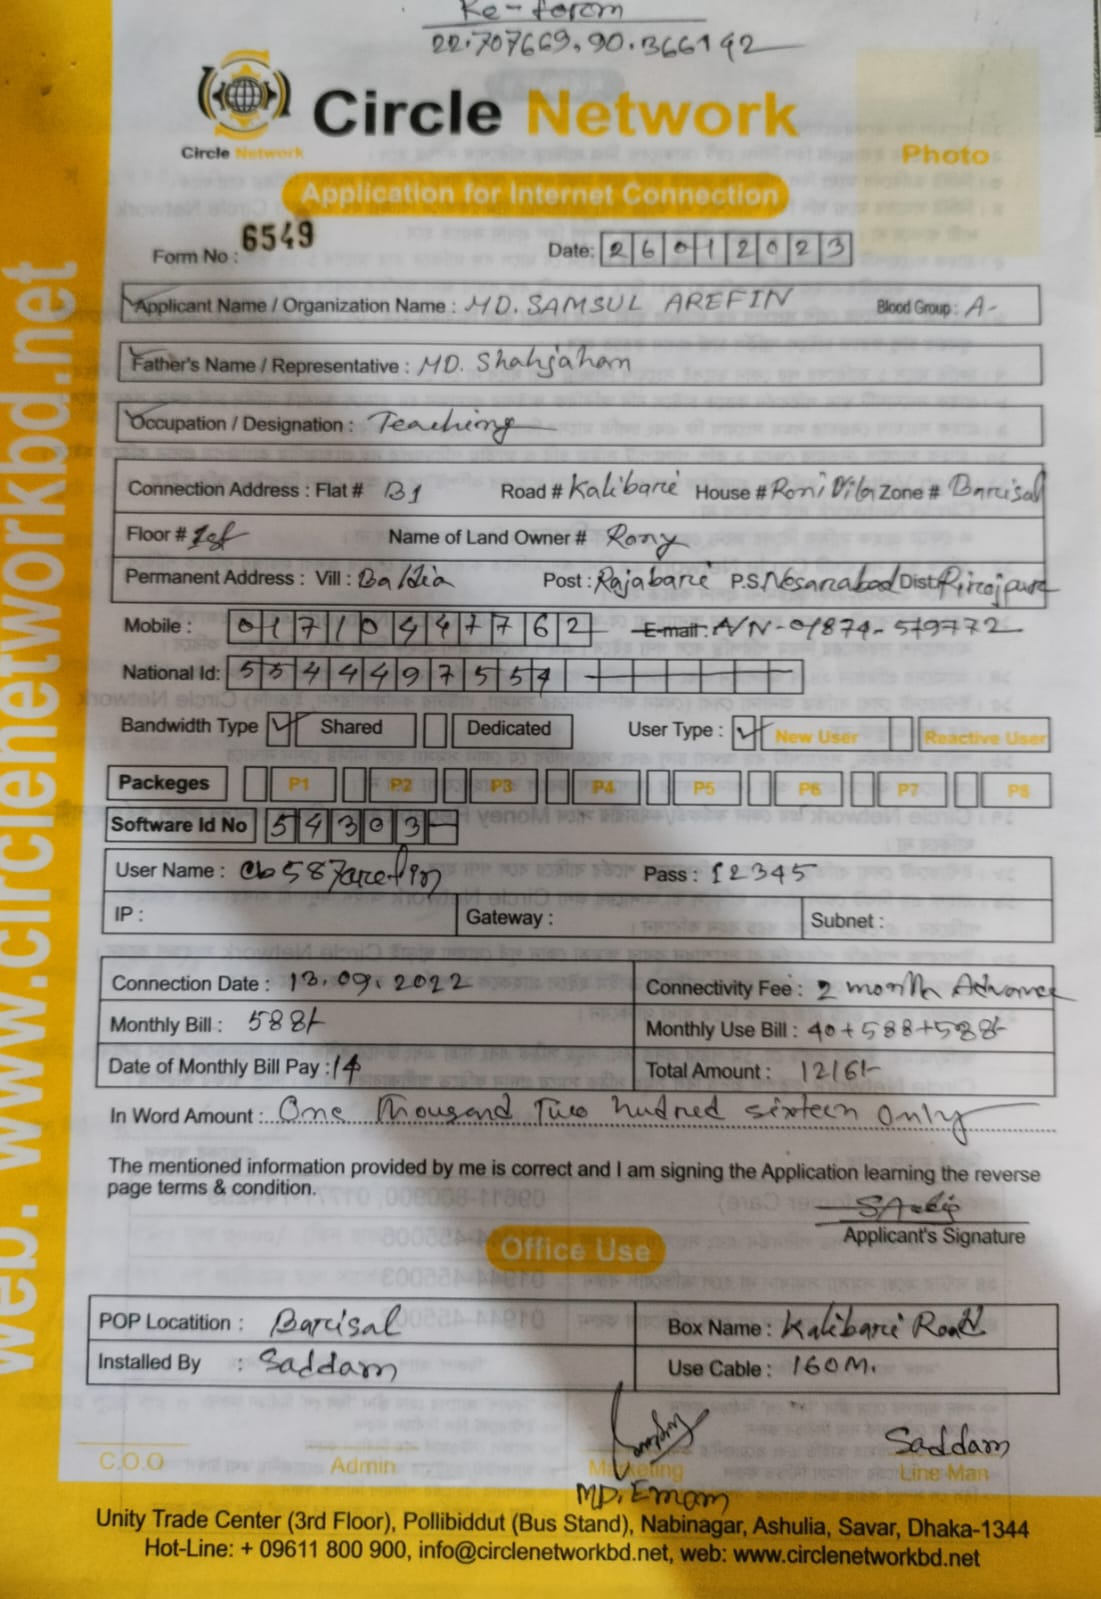 Re-form
22.707669,90.366192
Circle Network
Circle Network
Photo
Application for Internet Connection
Form No : 6549 Date: 26012023
Applicant Name / Organization Name : MD. SAMSUL AREFIN Blood Group : A-
Father's Name / Representative : MD. Shahjahan
Occupation / Designation : Teaching
Connection Address : Flat # B1 Road # Kalibari House # Roni Vila Zone # Barisal
Floor # 1st Name of Land Owner # Rony
Permanent Address : Vill : Post : Rajabari P.S. Nesarabad Dist: Pirojpur
Mobile : 01710447762 E-mail : N/N-01874-519772
National Id: 5544497554
Bandwidth Type Shared Dedicated User Type : New User Reactive User
Packeges P1 P2 P3 P4 P5 P6 P7 P8
Software Id No 54303
User Name : cb587arefin Pass : 12345
IP : Gateway : Subnet :
Connection Date : 13.09.2022 Connectivity Fee : 2 month Advance
Monthly Bill : 588/- Monthly Use Bill : 40+588+588/-
Date of Monthly Bill Pay : 14 Total Amount : 1216/-
In Word Amount : One Thousand Two hudred sixteen only
The mentioned information provided by me is correct and I am signing the Application learning the reverse
page terms & condition.
Applicant's Signature
Office Use
POP Locatition : Barisal Box Name : Kalibari Road
Installed By : Saddam Use Cable : 160M.
Saddam
C.O.O Admin Marketing Line Man
MD. Emam
Unity Trade Center (3rd Floor), Pollibiddut (Bus Stand), Nabinagar, Ashulia, Savar, Dhaka-1344
Hot-Line: + 09611 800 900, info@circlenetworkbd.net, web: www.circlenetworkbd.net
web: www.circlenetworkbd.net